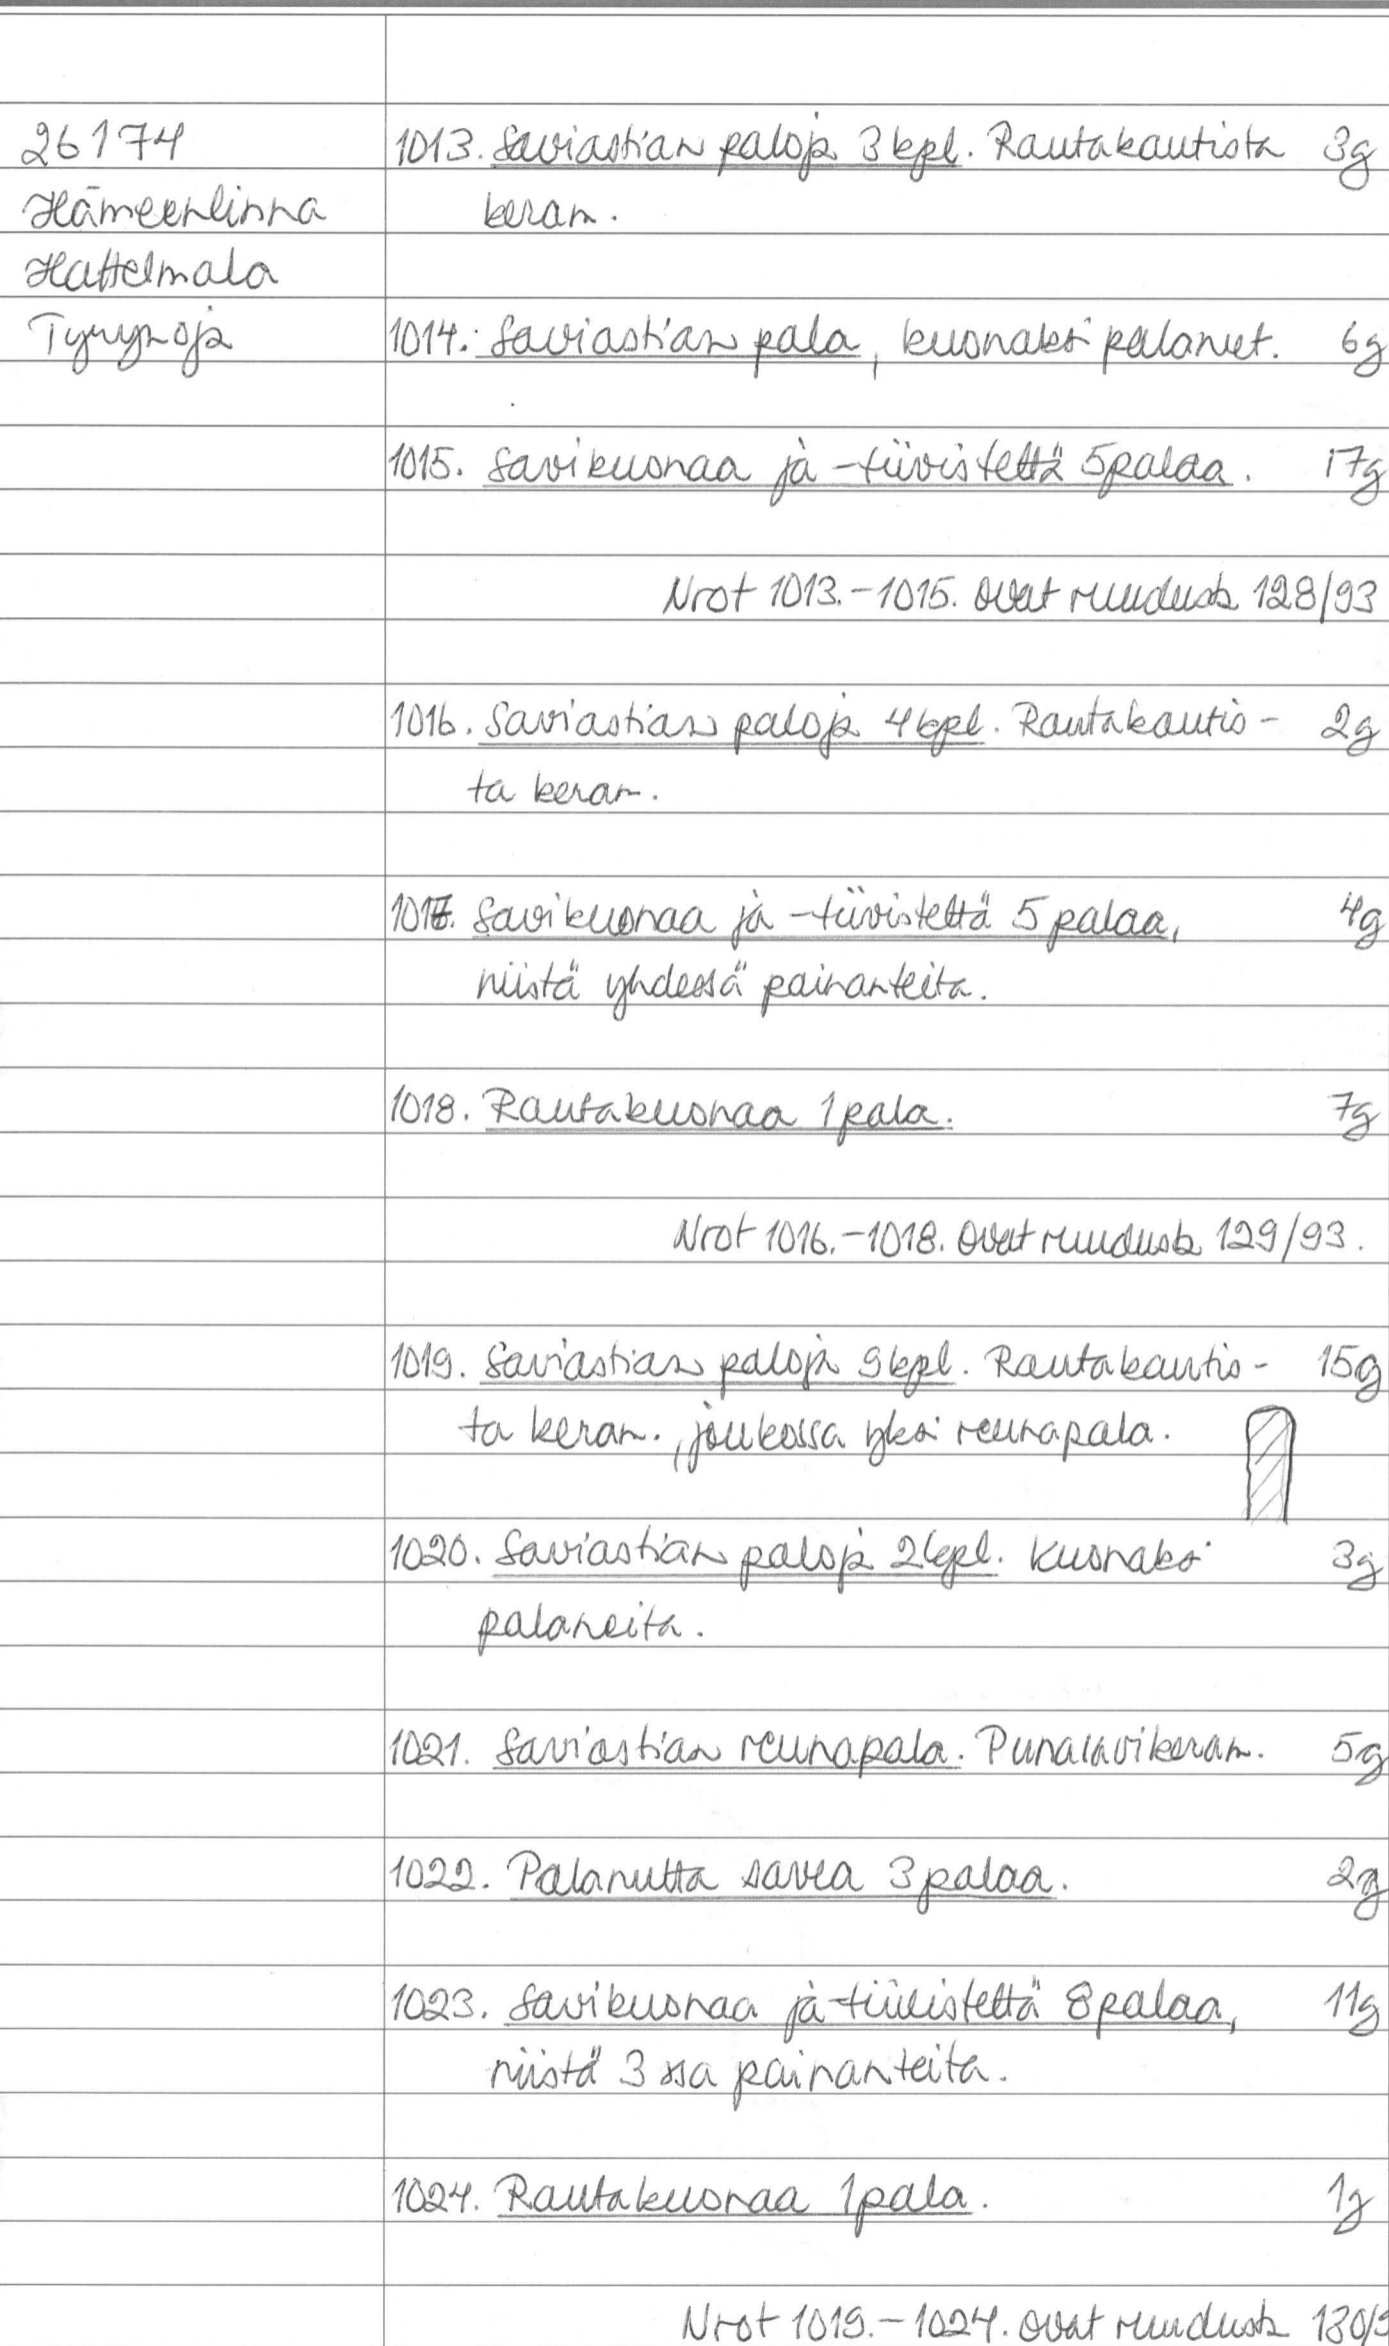 26174
Hämeenlinna
Hattelmala
Tyrynoja
1013. Saviastian paloja 3 kpl. Rautakautista 3g
keram.
1014. Saviastian pala, kuonaksi palanut. 6g
1015. Savikuonaa ja -tiivistettä 5 palaa. 17g
Nrot 1013.-1015. ovat ruudusta 128/93
1016. Saviastian paloja 4 kpl. Rautakautis- 2g
ta keram.
1017. Savikuonaa ja -tiivistettä 5 palaa, 4g
niistä yhdessä painanteita.
1018. Rautakuonaa 1 pala. 7g
Nrot 1016.-1018. ovat ruudusta 129/93.
1019. Saviastian paloja 9 kpl. Rautakautis- 15g
ta keram., joukossa yksi reunapala.
1020. Saviastian paloja 2 kpl. Kuonaksi 3g
palaneita.
1021. Saviastian reunapala. Punasavikeram. 5g
1022. Palanutta savea 3 palaa. 2g
1023. Savikuonaa ja -tiivistettä 8 palaa, 11g
niistä 3 ssa painanteita.
1024. Rautakuonaa 1 pala. 1g
Nrot 1019.-1024. ovat ruudusta 130/